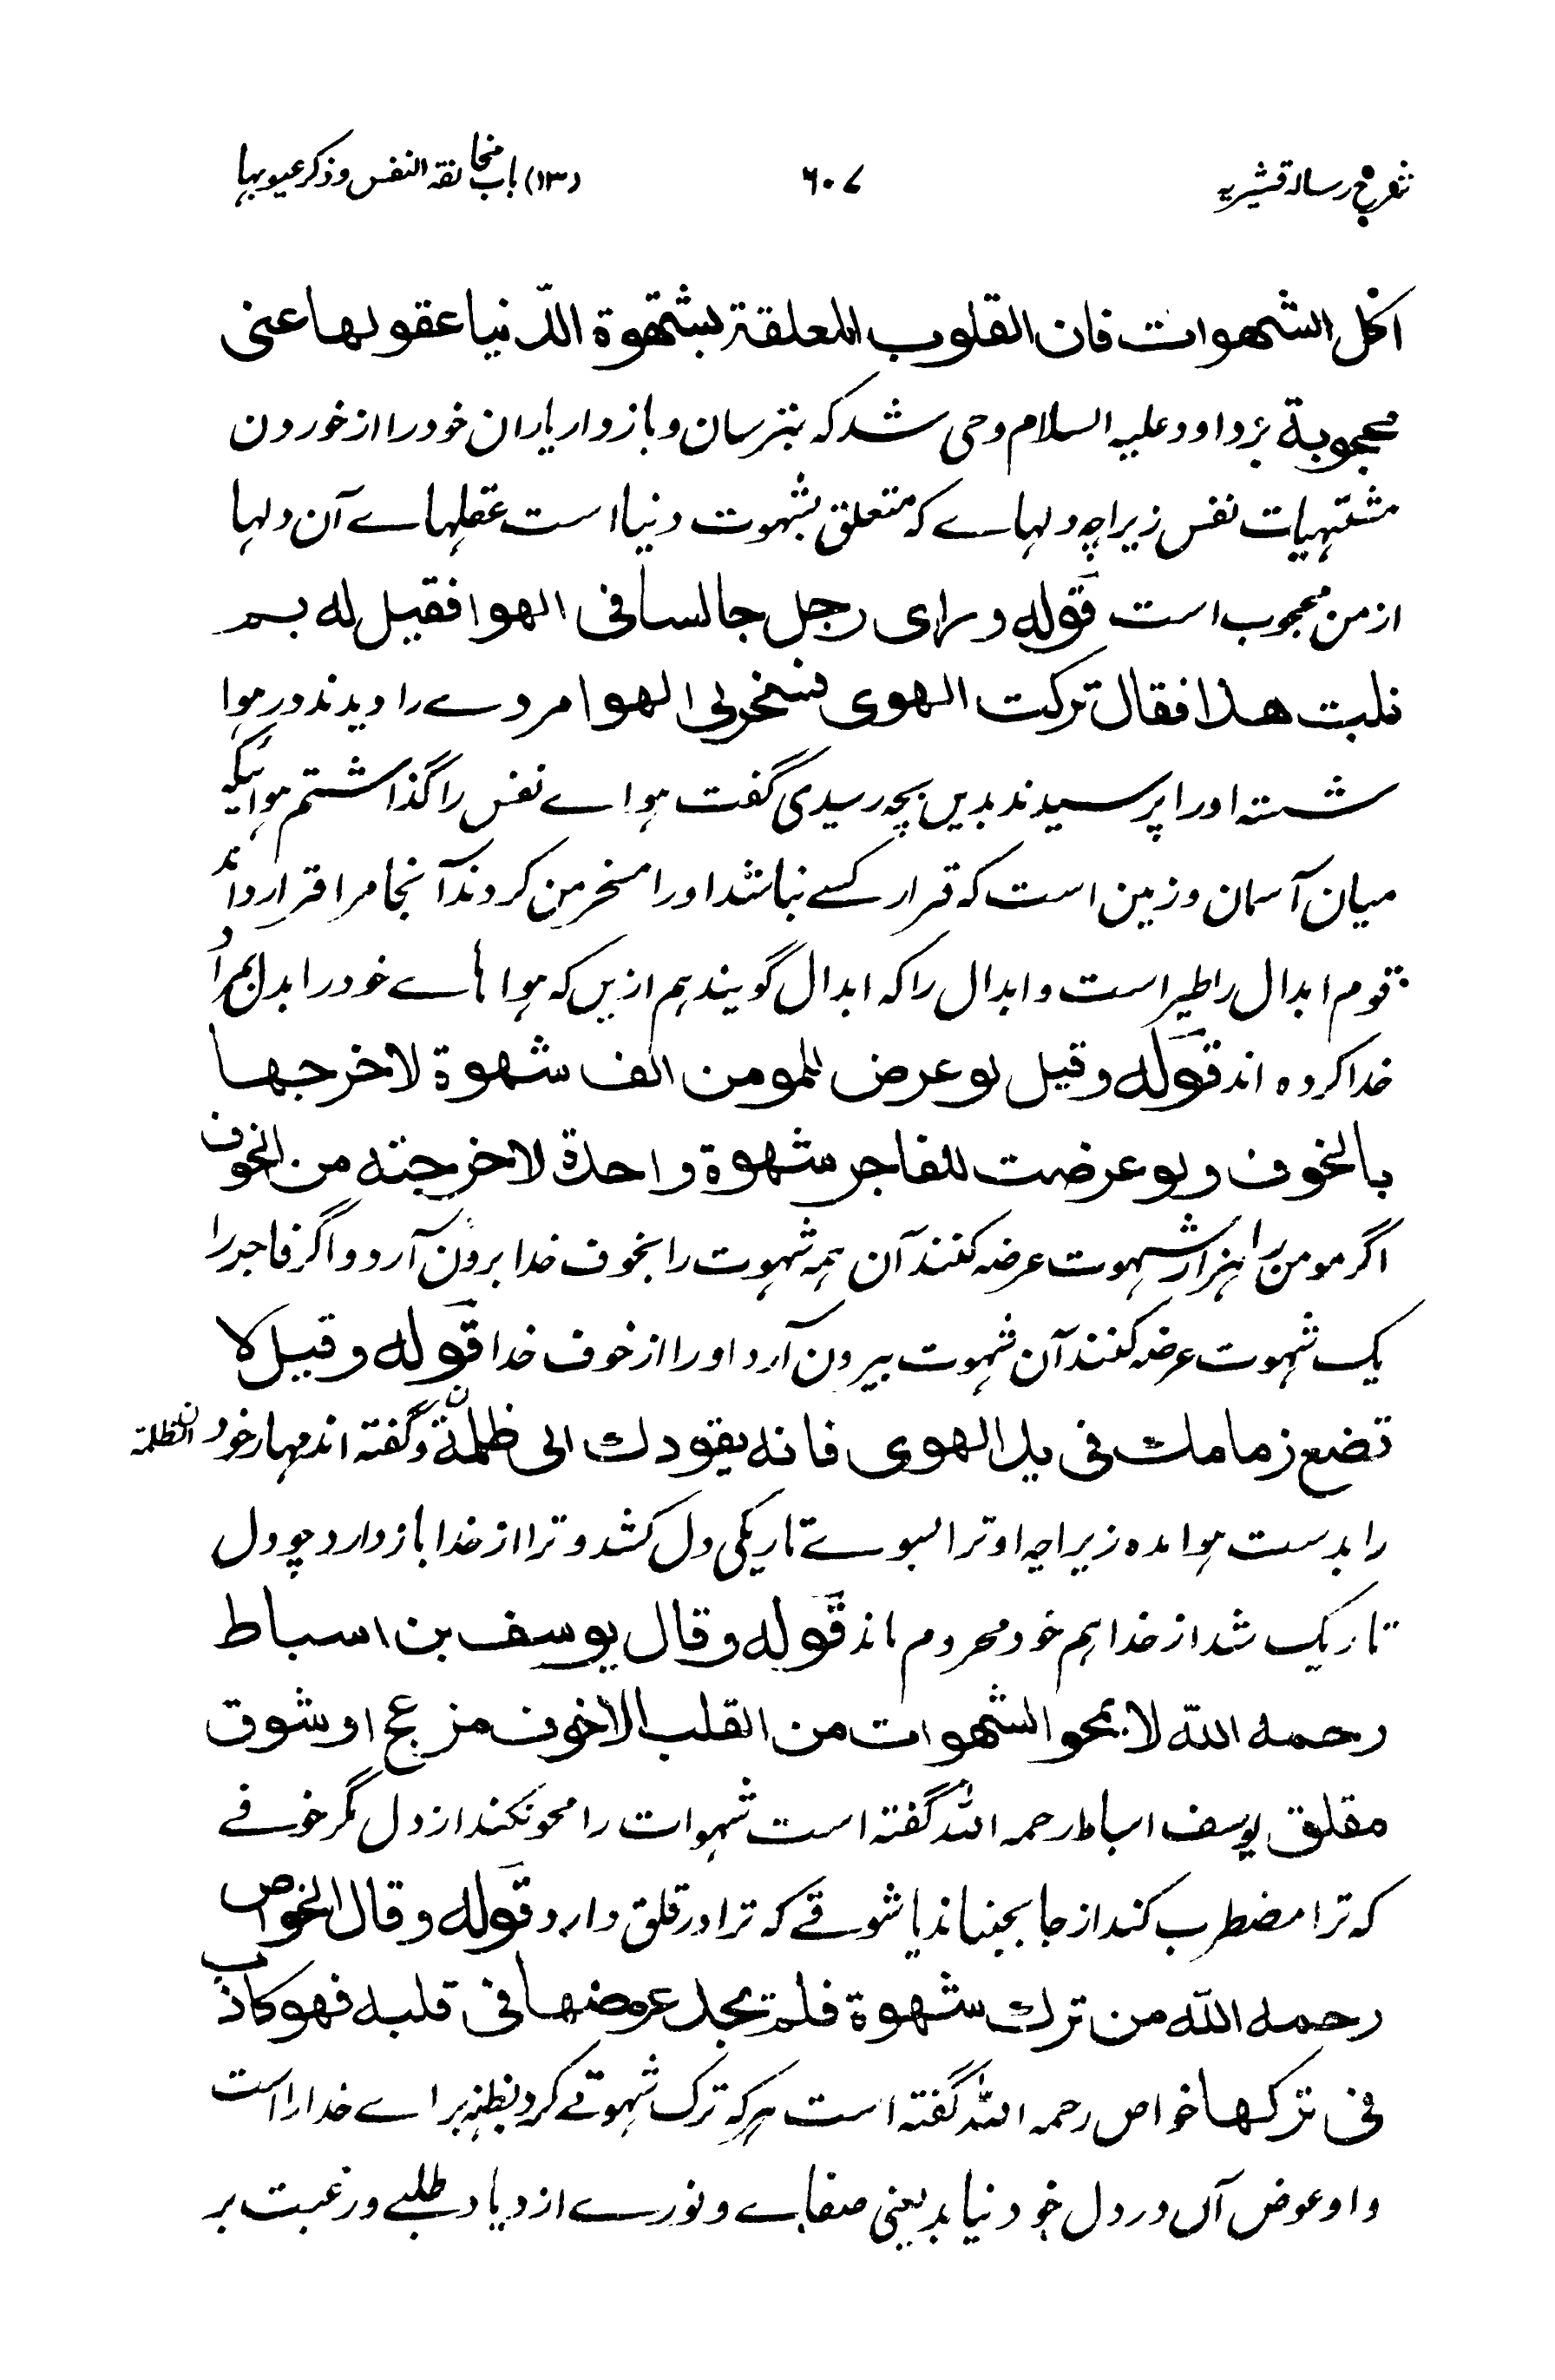 شرح رسالہ قشیریہ ۶۰۷ (۱۳) باب مخالفة النفس و ذکر عیوبہا
اکل الشهوات فان القلوب المعلقة بشهوة الدّنیا عقولها عنی
محجوبة بر داود علیہ السلام وحی شد کہ بترسان و باز دار یاران خود را از خوردن
مشتہیات نفس زیراچہ دلہاے کہ متعلق بشہوت دنیا است عقلہاے آن دلہا
از من محجوب است قوله و رای رجل جالسا فی الهوا فقیل له بم
نلت هذا فقال ترکت الهوی فسخرلی الهوا مردے را دیدند در ہوا
شستہ اورا پرسیدند بدیں بچہ رسیدی گفت ہواے نفس را گذاشتم ہوائیکہ
میان آسمان و زمین است کہ قرار کسے نباشد اورا مسخر من کردند آنجا مرا قرار داند
قوم ابدال را طیر است و ابدال را کہ ابدال گویند ہم ازیں کہ ہواہاے خود را بدل بمراد
خدا کردہ اند قوله وقیل لو عرض للمومن الف شهوة لاخرجها
بالخوف ولو عرضت للفاجر شهوة واحدة لاخرجته من الخوف
اگر مومن را ہزار شہوت عرضہ کنند آن ہمہ شہوت را بخوف خدا برون آرد و اگر فاجر را
یک شہوت عرضہ کنند آن شہوت بیرون آرد اورا از خوف خدا قوله وقیل لا
تضع زمامك فی ید الهوی فانه یقودك الی ظلمة ن و گفتہ اند مہار خود ن الظلمة
را بدست ہوا مدہ زیراچہ او ترا بسوے تاریکی دل کشد و ترا از خدا باز دارد چو دل
تاریک شد از خدا ہم خود محروم ماند قوله وقال یوسف بن اسباط
رحمه الله لا یمحو الشهوات من القلب الاخوف مزعج او شوق
مقلق یوسف اسباط رحمہ اللہ گفتہ است شہوات را محو نکند از دل مگر خوفے
کہ ترا مضطرب کند از جا بجنباند یا شوقے کہ ترا در قلق دارد قوله وقال الخواص
رحمه الله من ترك شهوة فلم یجد عوضها فی قلبه فهو کاذب
فی ترکها خواص رحمہ اللہ گفتہ است ہرکہ ترک شہوتے کرد بظنہ براے خدارا است
و او عوض آں در دل خود نیابد یعنی صفاے و نورے ازدیاد طلبے و رغبت بر